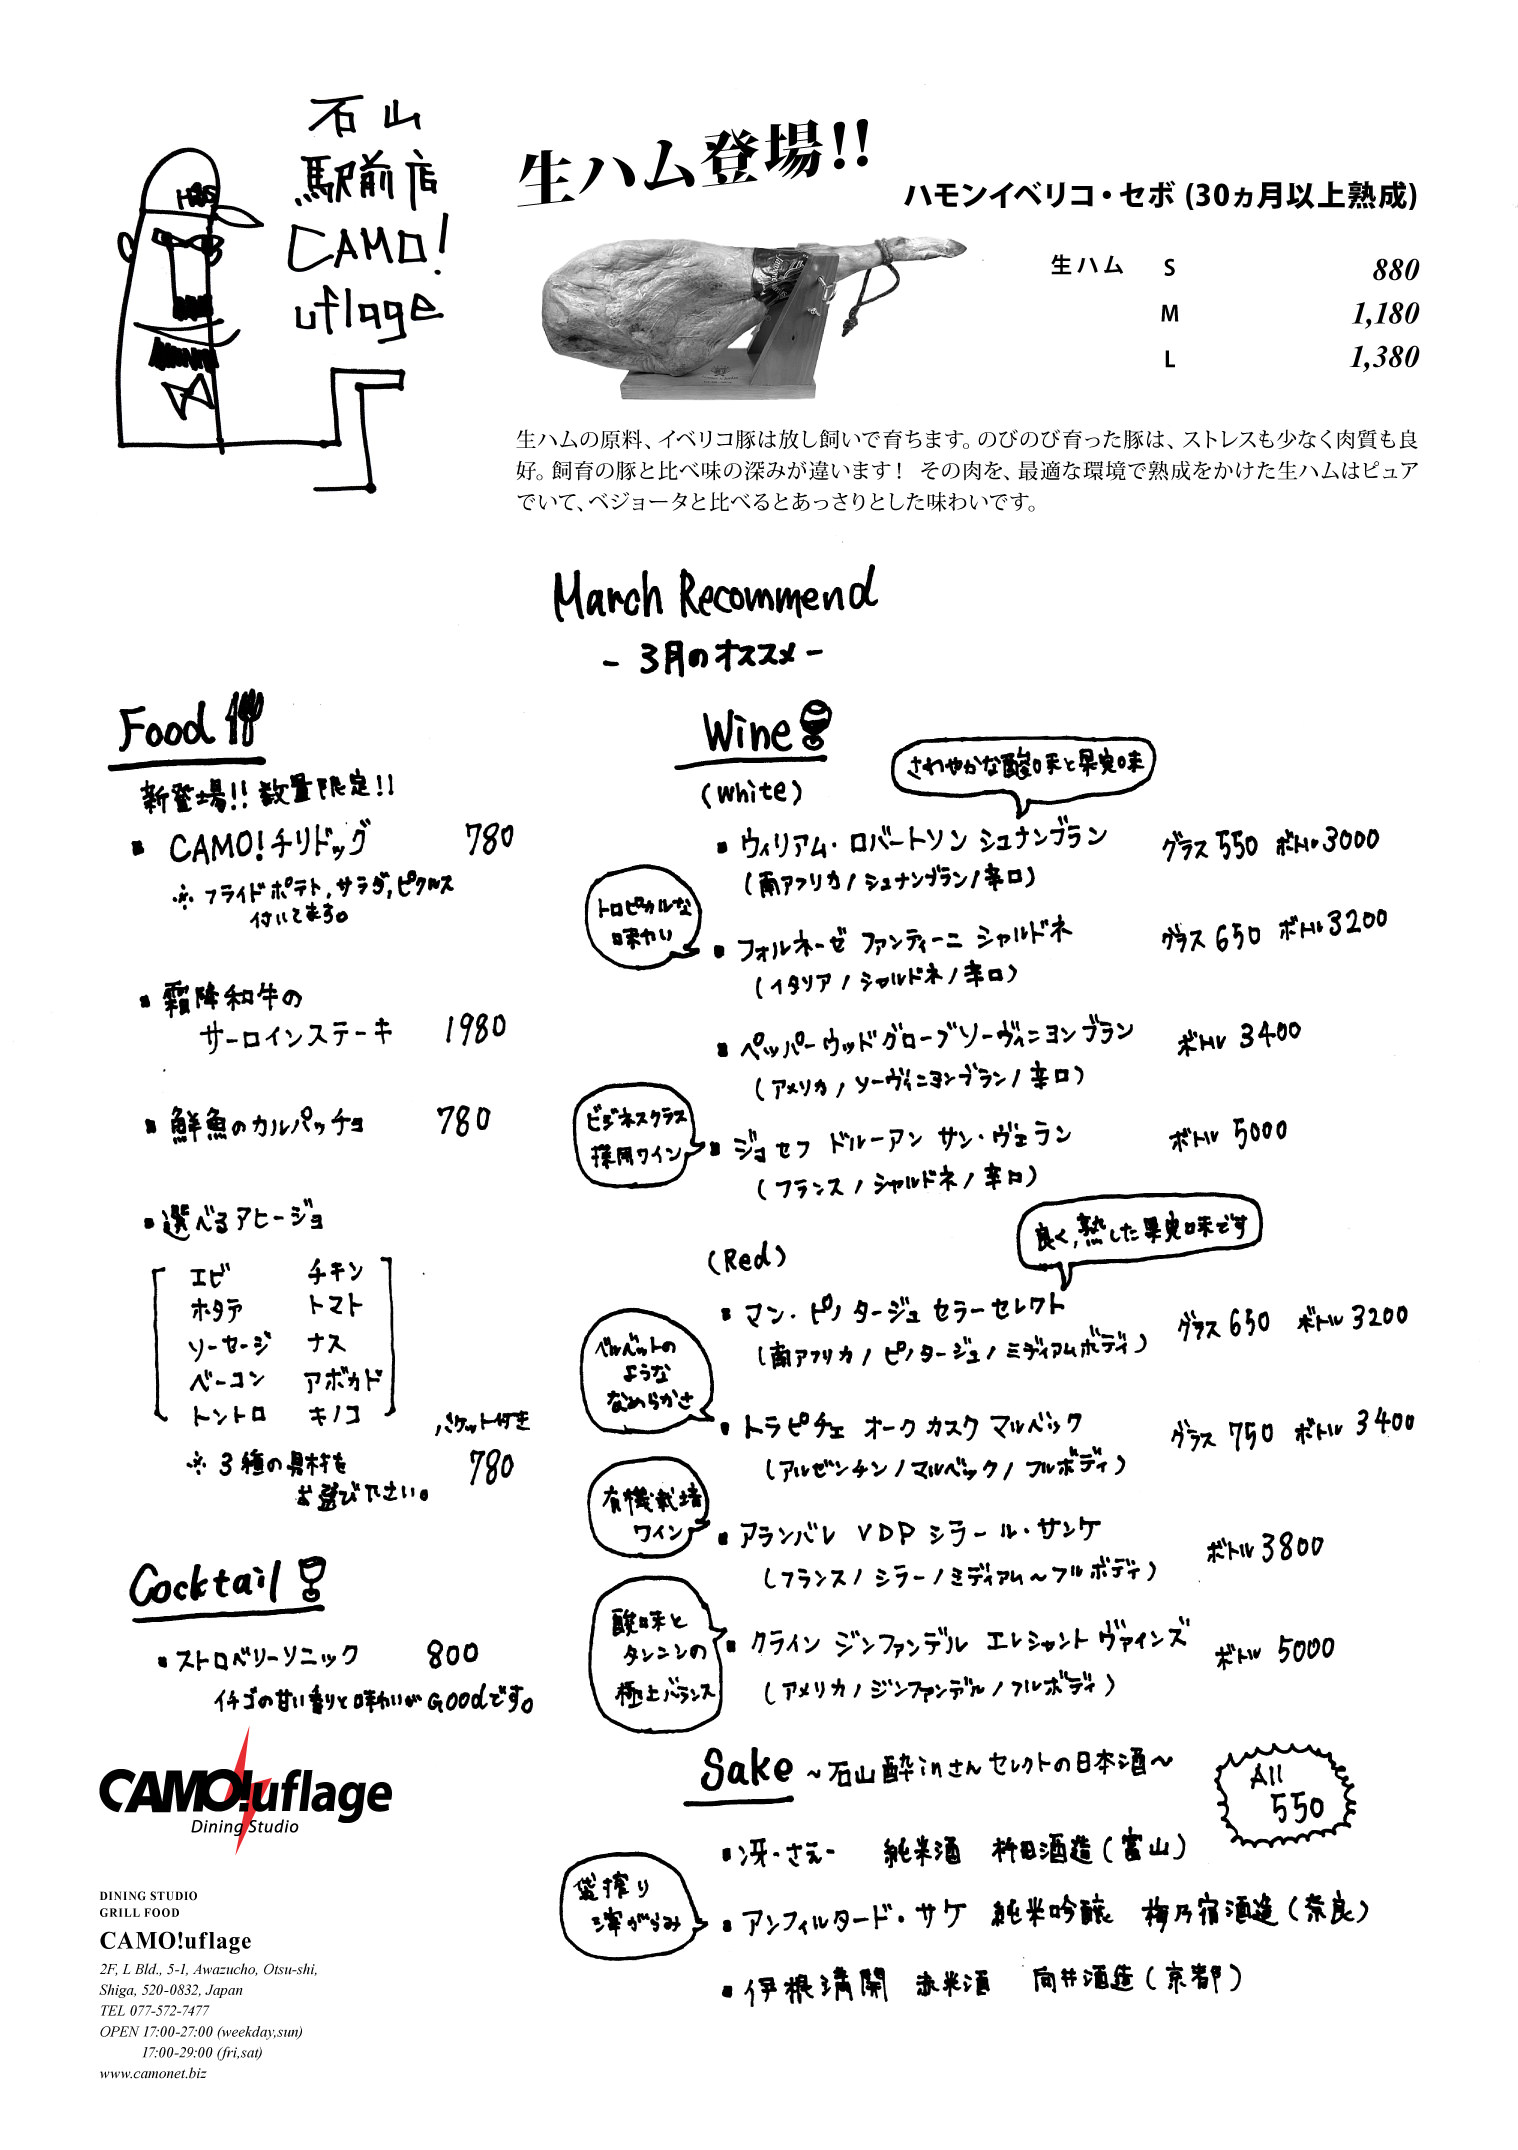 石山
駅前店
CAMO!
uflage
生ハム登場!!
ハモンイベリコ・セボ (30ヵ月以上熟成)
生ハム S 880
M 1,180
L 1,380
生ハムの原料、イベリコ豚は放し飼いで育ちます。のびのび育った豚は、ストレスも少なく肉質も良
好。飼育の豚と比べ味の深みが違います! その肉を、最適な環境で熟成をかけた生ハムはピュア
でいて、ベジョータと比べるとあっさりとした味わいです。
March Recommend
- 3月のオススメ -
Food
新登場!! 数量限定!!
▪ CAMO!チリドッグ 780
※ フライドポテト,サラダ,ピクルス
付いてます。
▪ 霜降和牛の
サーロインステーキ 1980
▪ 鮮魚のカルパッチョ 780
▪ 選べるアヒージョ
エビ チキン
ホタテ トマト
ソーセージ ナス
ベーコン アボカド
トントロ キノコ
バケット付き
※ 3種の具材を 780
お選び下さい。
Cocktail
▪ ストロベリーソニック 800
イチゴの甘い香りと味わいがGoodです。
CAMO!uflage
Dining Studio
DINING STUDIO
GRILL FOOD
CAMO!uflage
2F, L Bld., 5-1, Awazucho, Otsu-shi,
Shiga, 520-0832, Japan
TEL 077-572-7477
OPEN 17:00-27:00 (weekday,sun)
17:00-29:00 (fri,sat)
www.camonet.biz
Wine
(White)
さわやかな酸味と果実味
▪ ウィリアム・ロバートソン シュナンブラン グラス 550 ボトル 3000
(南アフリカ / シュナンブラン / 辛口)
トロピカルな
味わい
▪ フォルネーゼ ファンティーニ シャルドネ グラス 650 ボトル 3200
(イタリア / シャルドネ / 辛口)
▪ ペッパーウッドグローブソーヴィニヨンブラン ボトル 3400
(アメリカ / ソーヴィニヨンブラン / 辛口)
ビジネスクラス
採用ワイン
▪ ジョセフ ドルーアン サン・ヴェラン ボトル 5000
(フランス / シャルドネ / 辛口)
(Red)
良く,熟した果実味です
▪ マン・ピノタージュ セラーセレクト グラス 650 ボトル 3200
(南アフリカ / ピノタージュ / ミディアムボディ)
ベルベットの
ような
なめらかさ
▪ トラピチェ オーク カスク マルベック グラス 750 ボトル 3400
(アルゼンチン / マルベック / フルボディ)
有機栽培
ワイン
▪ アランバレ VDP シラール・サンケ ボトル 3800
(フランス / シラー / ミディアム〜フルボディ)
酸味と
タンニンの
極上バランス
▪ クライン ジンファンデル エレシャント ヴァインズ ボトル 5000
(アメリカ / ジンファンデル / フルボディ)
Sake 〜石山酔inさんセレクトの日本酒〜
All
550
▪ 冴-さえ- 純米酒 桝田酒造(富山)
袋搾り
滓がらみ
▪ アンフィルタード・サケ 純米吟醸 梅乃宿酒造(奈良)
▪ 伊根満開 赤米酒 向井酒造(京都)